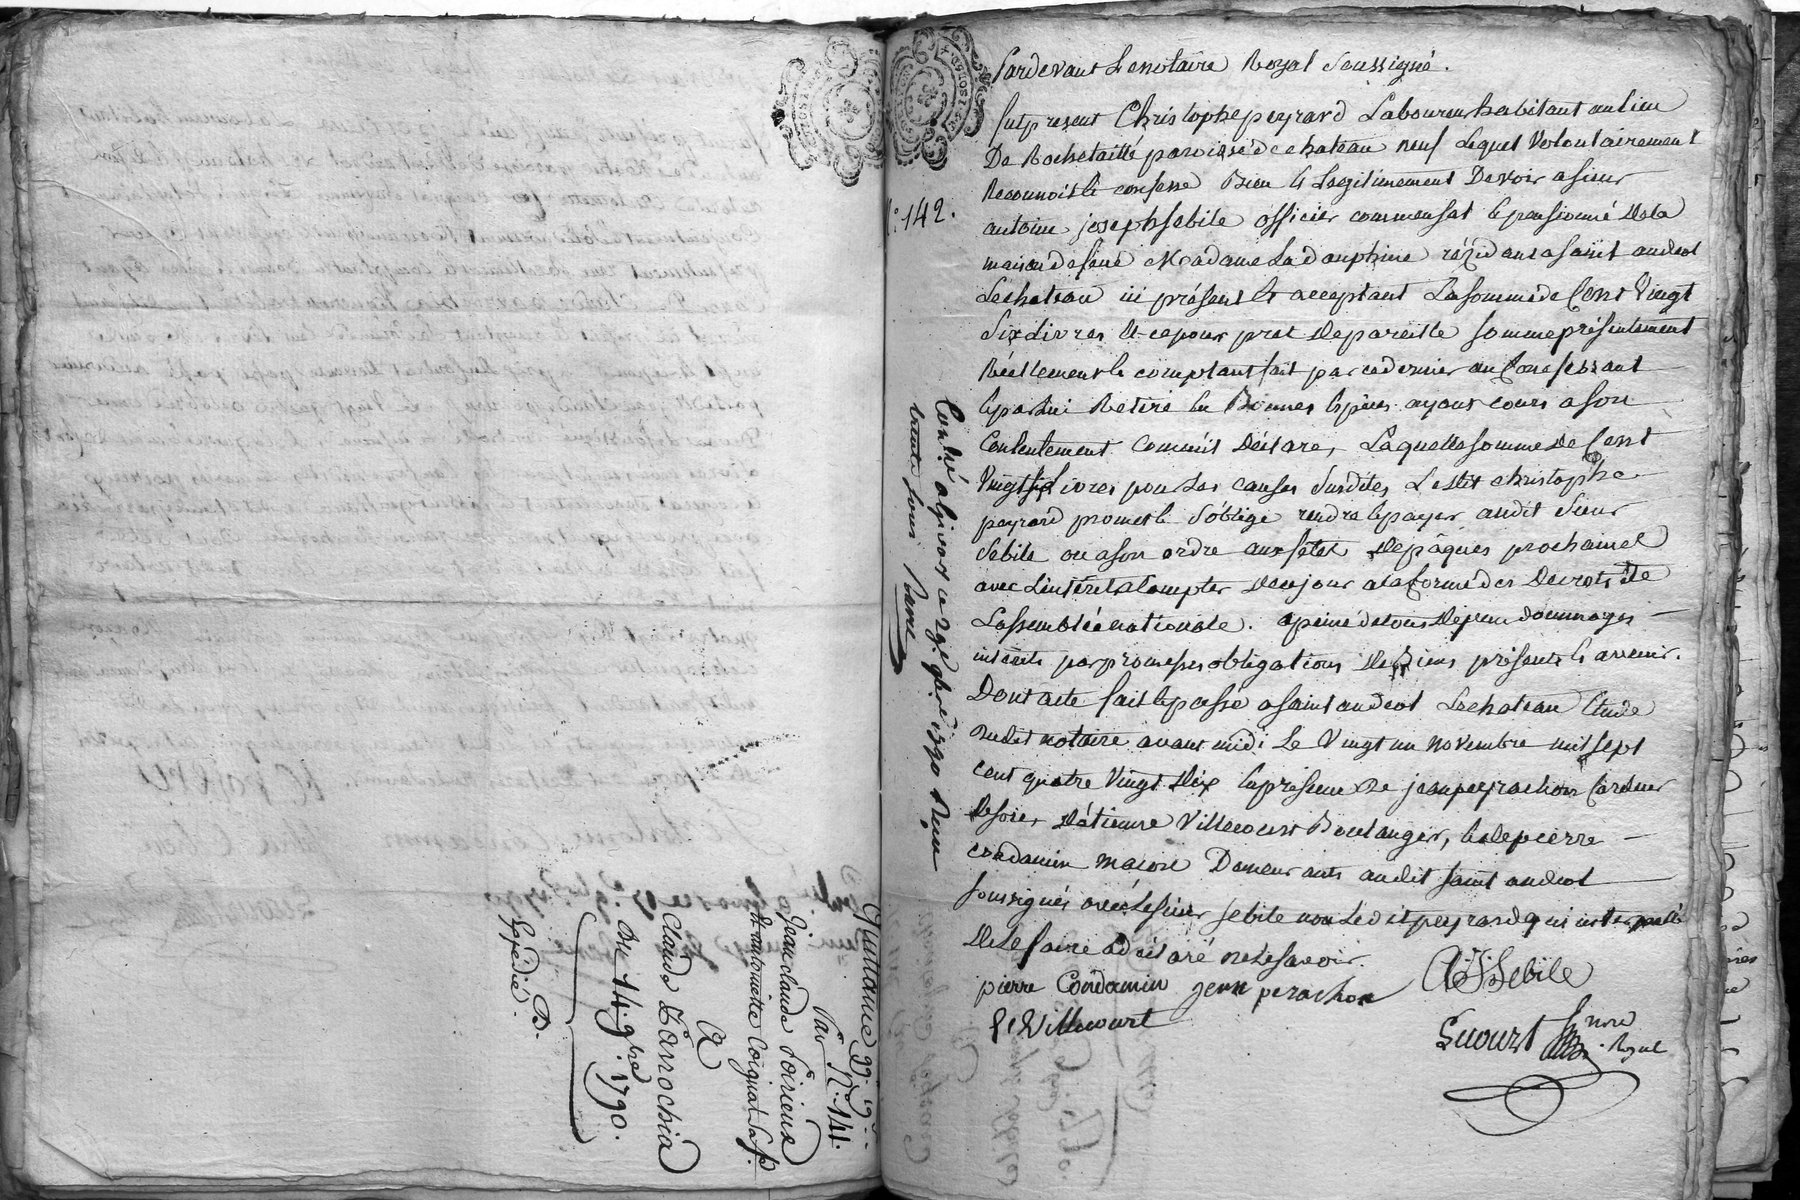 Quittance 99# 19s
Par N.° 141.
Jean claude Poirieux
et antoinette Coignat sa f.e
A
Claude Barrochia
Du 14 9bre 1790.
Expédié. D.
N.° 142.
Contlé a givors ce 29e 9bre 1790 Reçu
trente sous Parre
Pardevant Le notaire Royal Soussigné.
fut present Christophe peyrard Laboureur habitant au lieu
De Rochetaillé paroisse de chateau neuf Lequel Volontairement
Reconnoit & confesse Bien & Legitimement Devoir a sieur
antoine joseph Sebile officier commensal & pensionné de la
maison de feue Madame La dauphine rézidant a saint andeol
Le chateau ici présent & acceptant La somme de Cent Vingt
Six Livres & ce pour pret de pareille somme présentement
Réellement & comptant fait par ce dernier au Confessant
& par Lui Retiré En Bonnes Espèces ayant cours a son
Contentement Comme il Déclare, Laquelle somme de Cent
Vingt six Livres pour Les causes Susdites, Ledit christophe
peyrard promet & s'oblige rendre & payer audit Sieur
Sebile ou a son ordre aux fêtes de pâques prochaines
avec L'intérêt a Compter de ce jour a la forme des Decrets de
L'assemblée nationale. a peine de tous Depens dommages
intérêts par promesses obligations De Biens présents & avenir.
Dont acte fait & passé a saint andeol Le chateau Etude
Dudit notaire avant midi Le Vingt un novembre mil sept
cent quatre Vingt Dix En présence De jean peyrachon Cardeur
De soie, D'étienne Villecourt Boulanger, & de pierre
condamin macon Demeurants audit saint andeol
soussignés avec Le sieur sebile non Ledit peyrard qui interpellé
De Le faire a déclaré ne Le savoir.
pierre Condamin jean perachon AJSebile
E Villecourt
Lucourt nore Royal